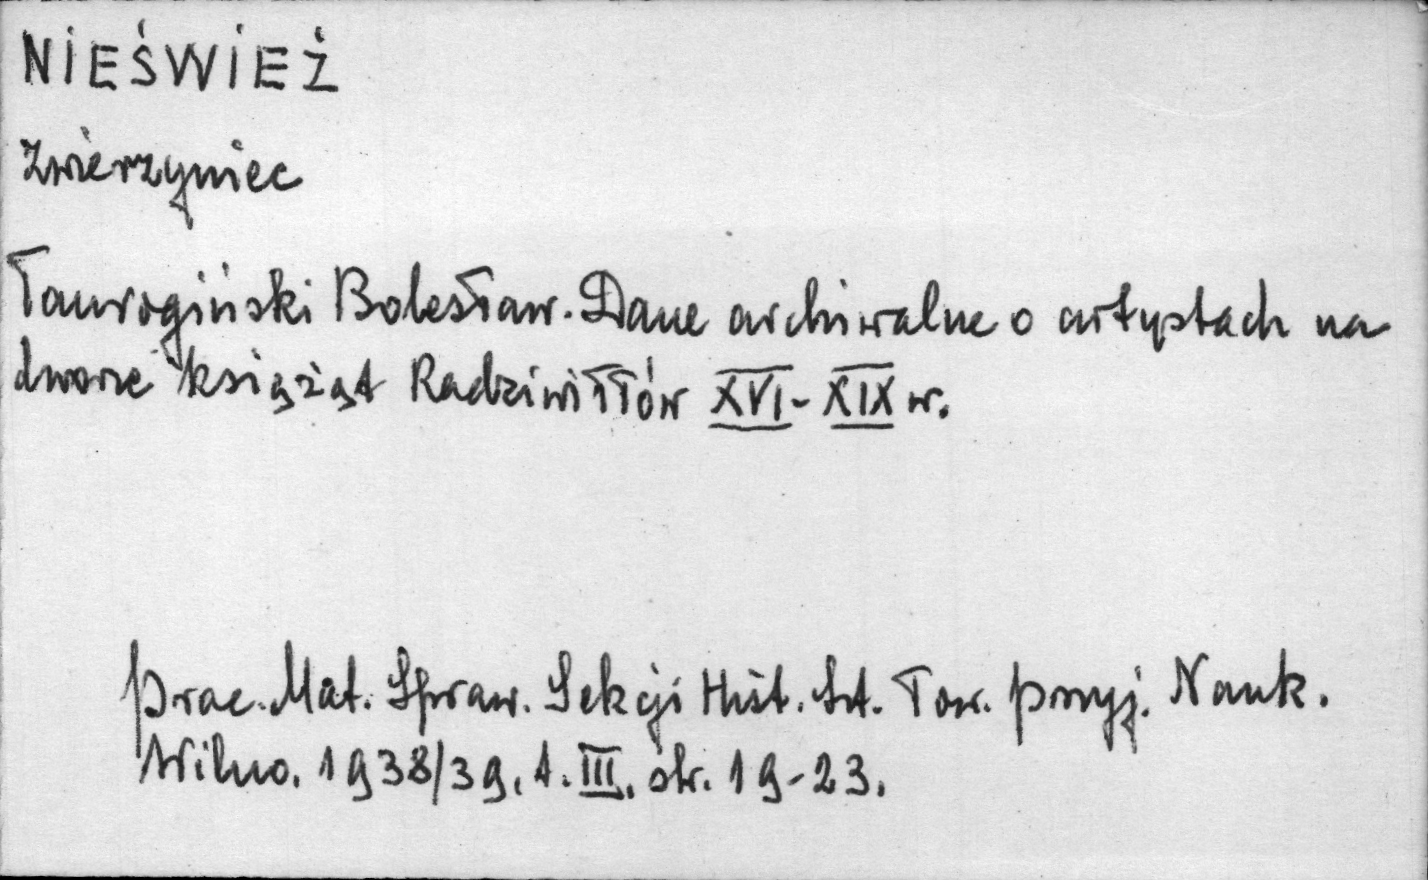 NIEŚWIEŻ
Zwierzyniec
Taurogiński Bolesław. Dane archiwalne o artystach na
dworze książąt Radziwiłłów XVI-XIX w.
Prac. Mat. Spraw. Sekcji Hist. Szt. Tow. przyj. Nauk.
Wilno. 1938/39. t. III. str. 19-23.